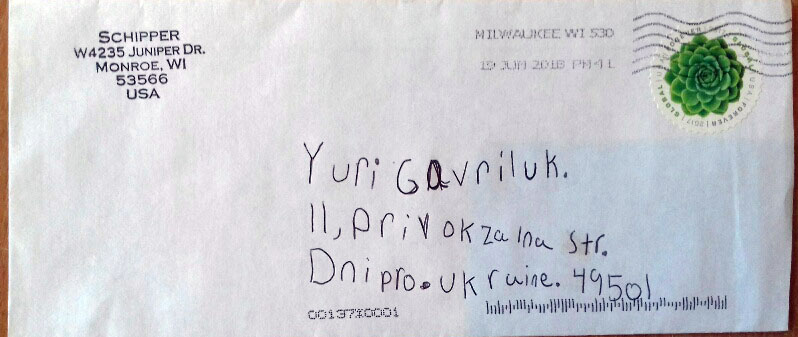 SCHIPPER
W4235 JUNIPER DR.
MONROE, WI
53566
USA
MILWAUKEE WI 530
19 JUN 2018 PM 4 L
GLOBAL USA FOREVER 2017
Yuri Gavriluk.
11, Privokzalna Str.
Dnipro. Ukraine. 49501
00137%0001